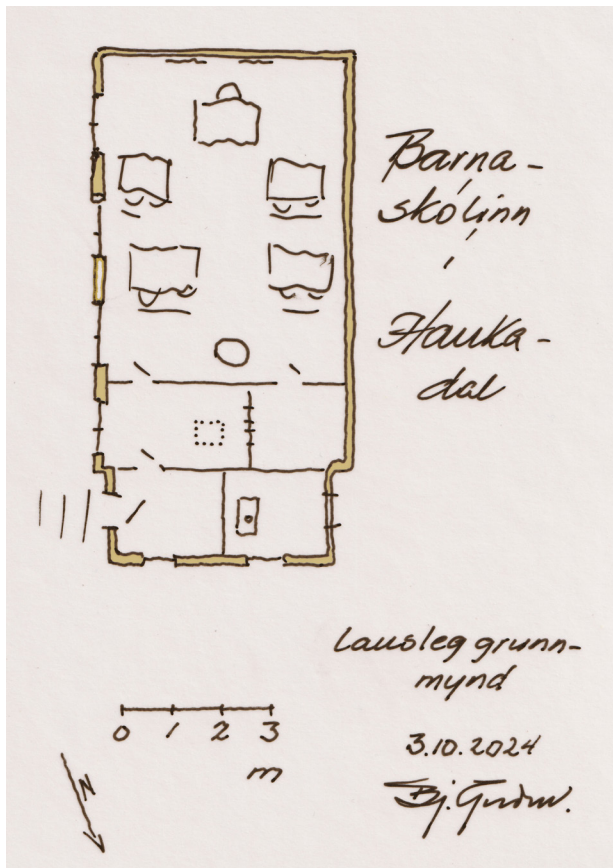 Barna-
skólinn
í
Hauka-
dal
Lausleg grunn-
mynd
0 1 2 3
m
N
3.10.2024
Bj. Guðm.